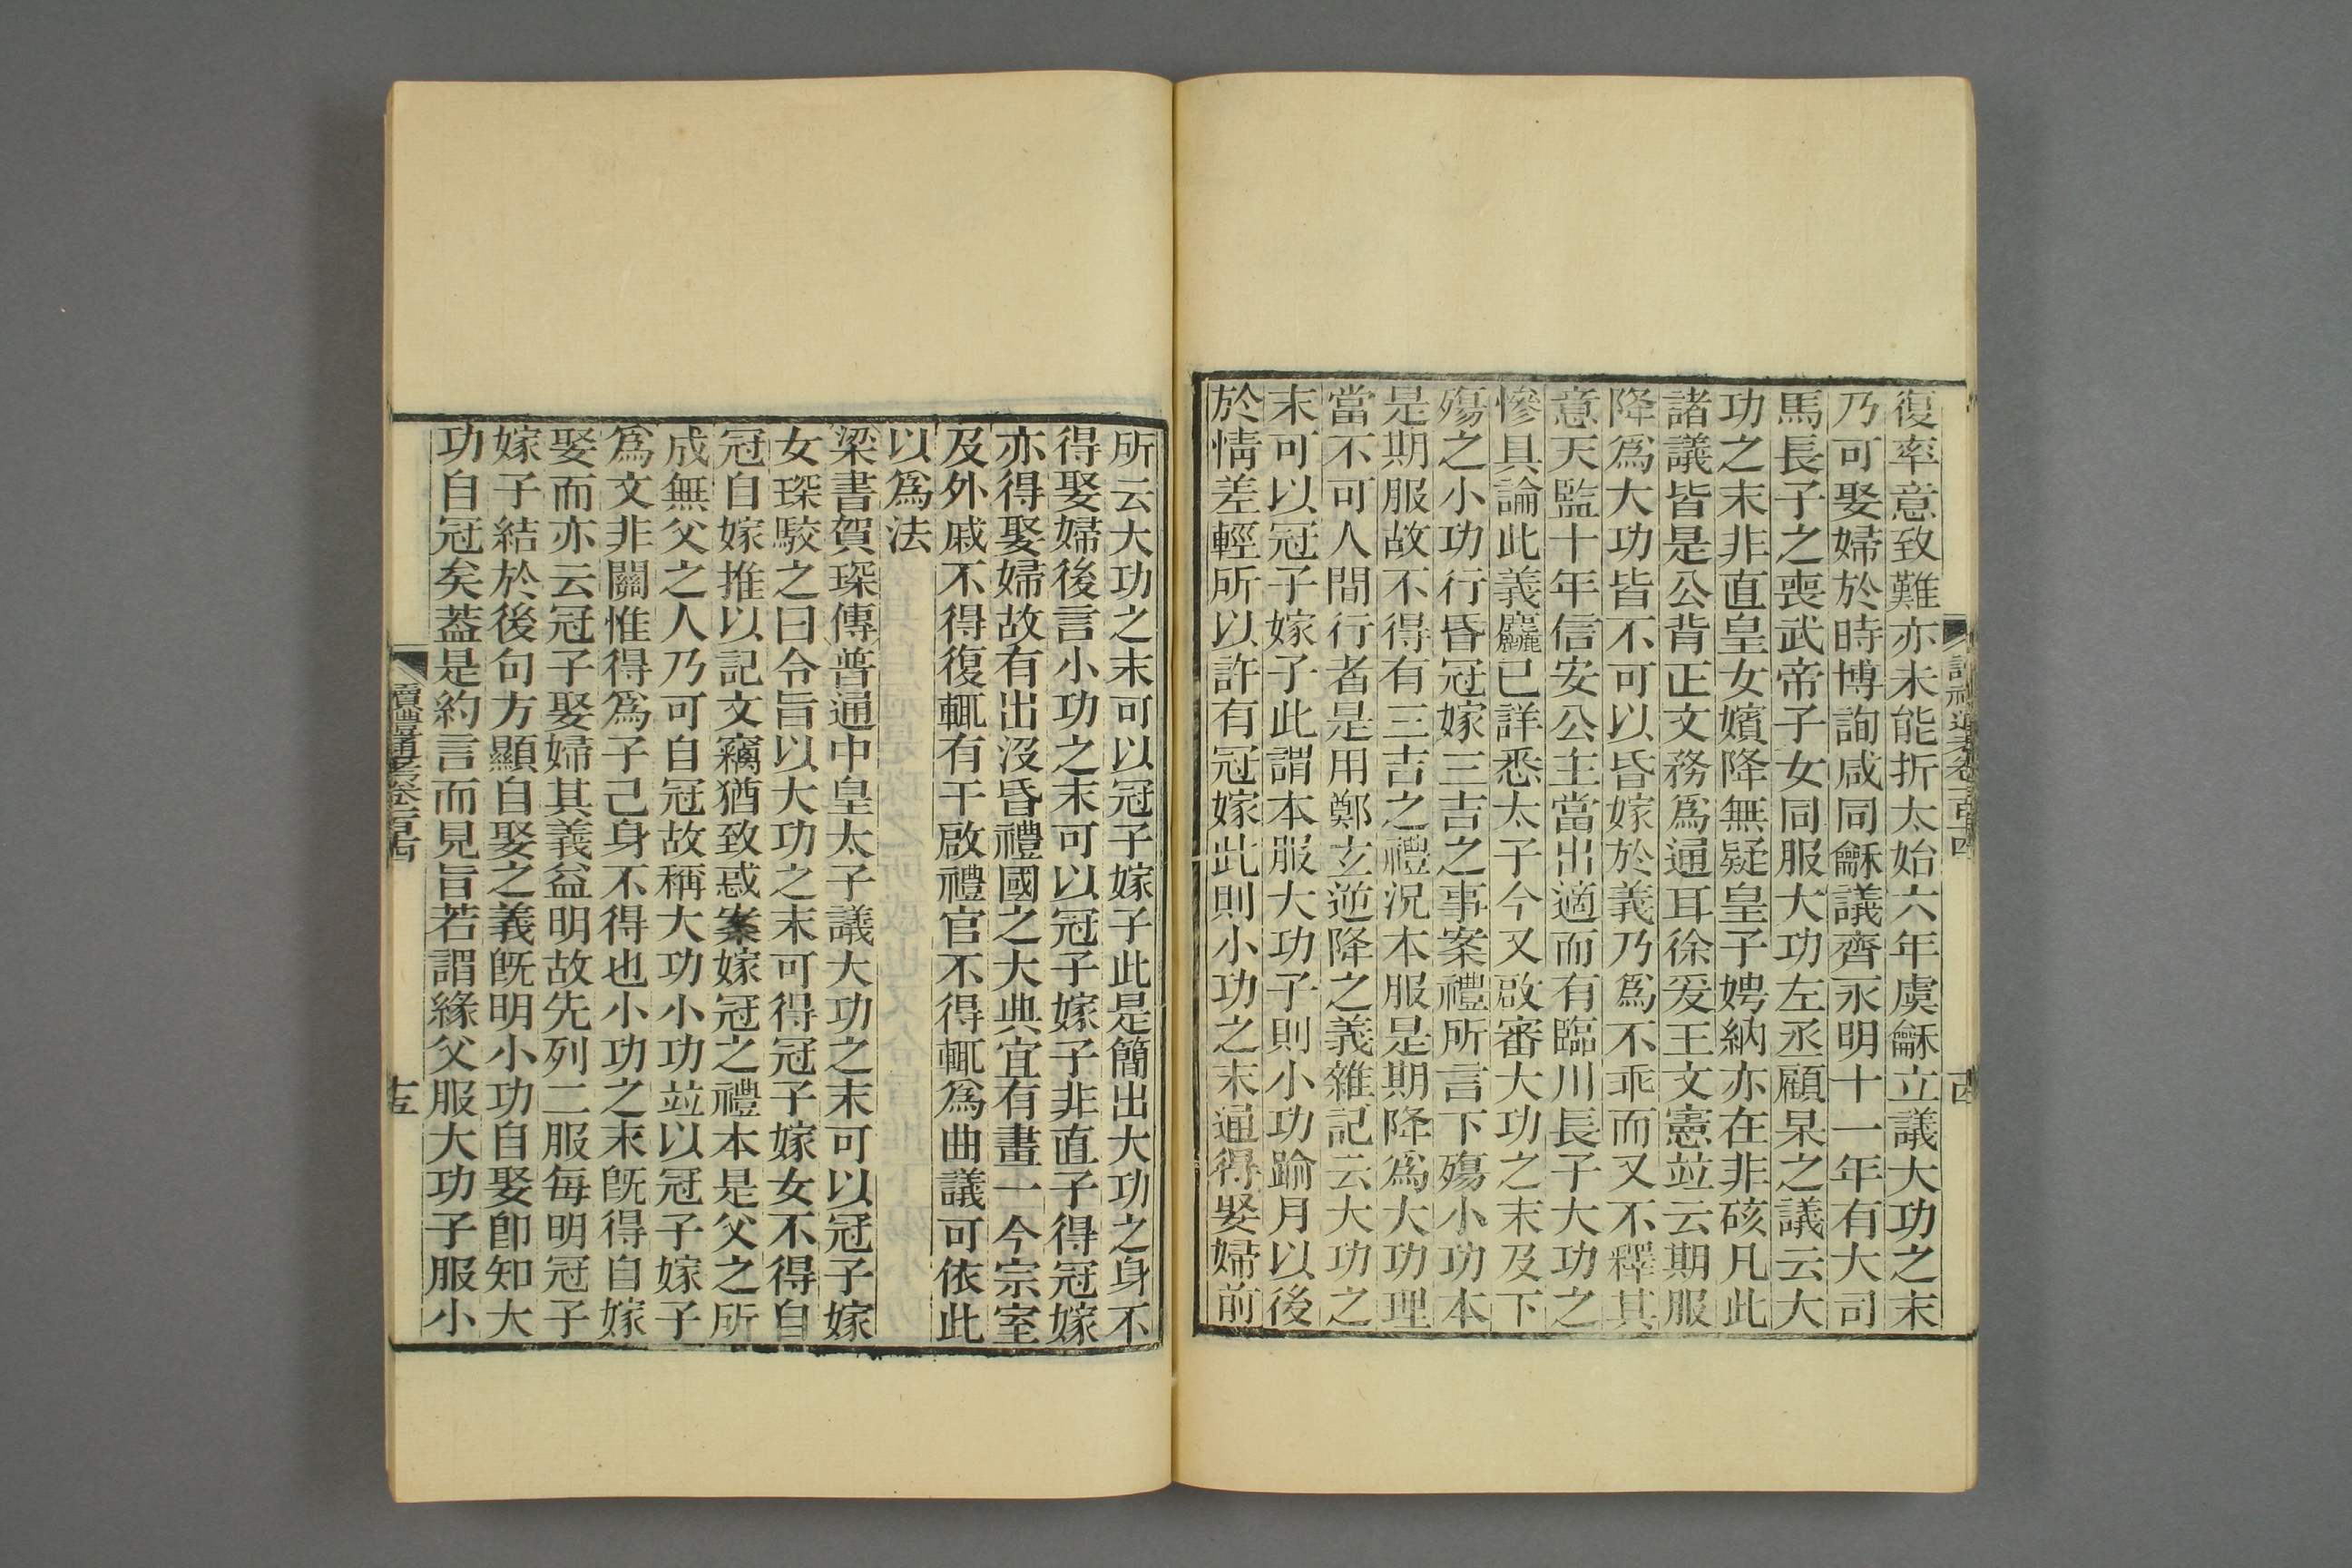 復率意致難亦未能折太始六年虞龢立議大功之末
乃可娶婦於時博詢咸同龢議齊永明十一年有大司
馬長子之喪武帝子女同服大功左丞顧杲之議云大
功之末非直皇女嬪降無疑皇子娉納亦在非硋凡此
諸議皆是公背正文務為通耳徐爰王文憲竝云期服
降為大功皆不可以昏嫁於義乃為不乖而又不釋其
意天監十年信安公主當出適而有臨川長子大功之
慘具論此義麤已詳悉太子今又啟審大功之末及下
殤之小功行昏冠嫁三吉之事案禮所言下殤小功本
是期服故不得有三吉之禮況本服是期降為大功理
當不可人間行者是用鄭玄逆降之義雜記云大功之
末可以冠子嫁子此謂本服大功子則小功踰月以後
於情差輕所以許有冠嫁此則小功之末通得娶婦前
所云大功之末可以冠子嫁子此是簡出大功之身不
得娶婦後言小功之末可以冠子嫁子非直子得冠嫁
亦得娶婦故有出沒昏禮國之大典宜有畫一今宗室
及外戚不得復輒有干啟禮官不得輒為曲議可依此
以為法
梁書賀琛傳普通中皇太子議大功之末可以冠子嫁
女琛駮之曰令旨以大功之末可得冠子嫁女不得自
冠自嫁推以記文竊猶致惑案嫁冠之禮本是父之所
成無父之人乃可自冠故稱大功小功竝以冠子嫁子
為文非關惟得為子己身不得也小功之末旣得自嫁
娶而亦云冠子娶婦其義益明故先列二服每明冠子
嫁子結於後句方顯自娶之義旣明小功自娶卽知大
功自冠矣蓋是約言而見旨若謂緣父服大功子服小
讀禮通考卷一百十四
十五